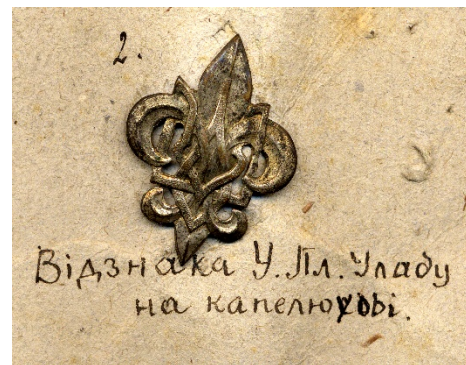 2.
Відзнака У. Пл. Уладу
на капелюхові.